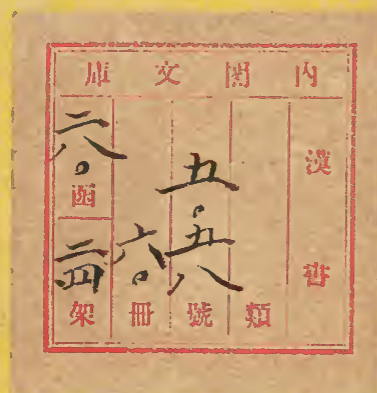 內閣文庫
漢書
類
五〇五八號
六〇冊
二八〇函
二四架